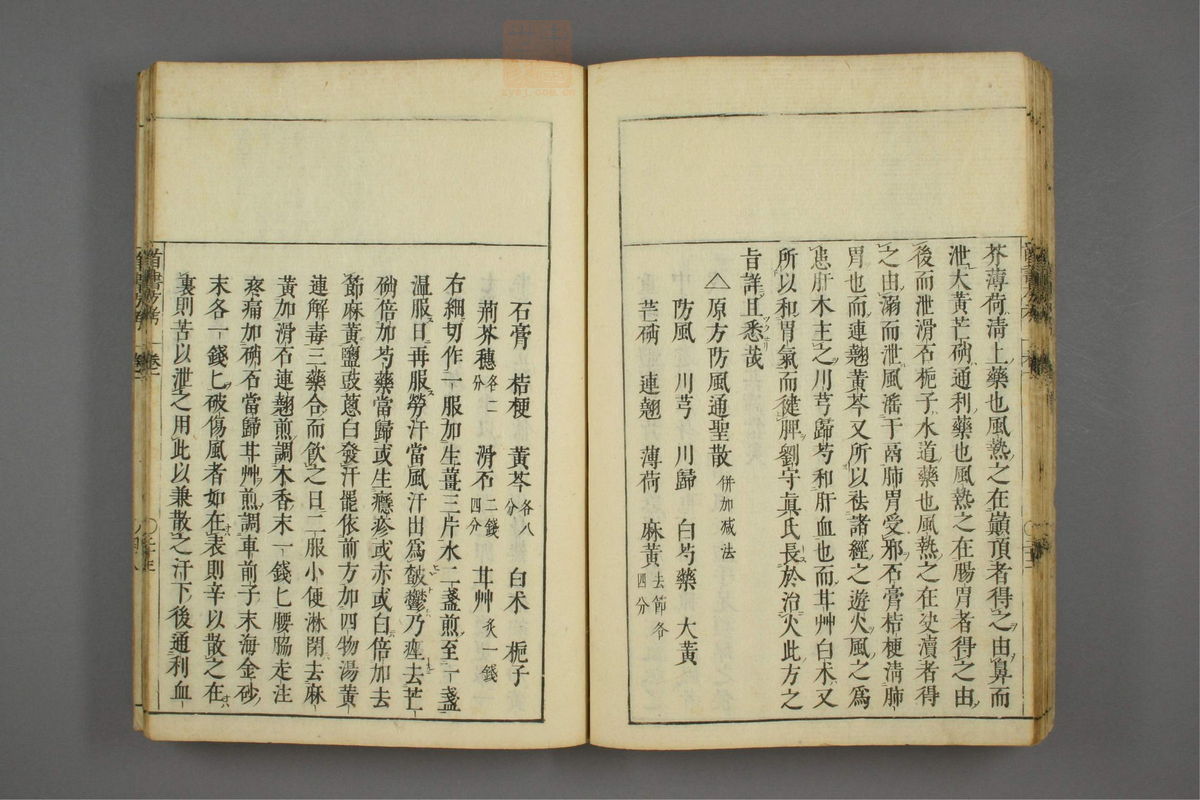 芥薄荷淸上藥也風熱之在巓頂者得之由鼻而
泄大黃芒硝通利藥也風熱之在腸胃者得之由
後而泄滑石梔子水道藥也風熱之在决瀆者得
之由溺而泄風淫于鬲肺胃受邪石膏桔梗淸肺
胃也而連翹黃芩又所以祛諸經之遊火風之爲
患肝木主之川芎歸芍和肝血也而甘艸白朮又
所以和胃氣而健脾劉守眞氏長於治火此方之
旨詳且悉哉
△原方防風通聖散 倂加减法
防風 川芎 川歸 白芍藥 大黃
芒硝 連翹 薄荷 麻黃 去節各四分
石膏 桔梗 黃芩 各八分 白朮 梔子
荊芥穗 各二分 滑石 二錢四分 甘艸 炙一錢
右細切作一服加生薑三片水二盞煎至一盞
温服日再服勞汗當風汗出爲皶鬱乃痤去芒
硝倍加芍藥當歸或生癮疹或赤或白倍加去
節麻黃鹽豉蔥白發汗罷依前方加四物湯黃
連解毒三藥合而飮之日二服小便淋閉去麻
黃加滑石連翹煎調木香末一錢匕腰脇走注
疼痛加硝石當歸甘艸煎調車前子末海金砂
末各一錢匕破傷風者如在表則辛以散之在
裏則苦以泄之用此以兼散之汗下後通利血